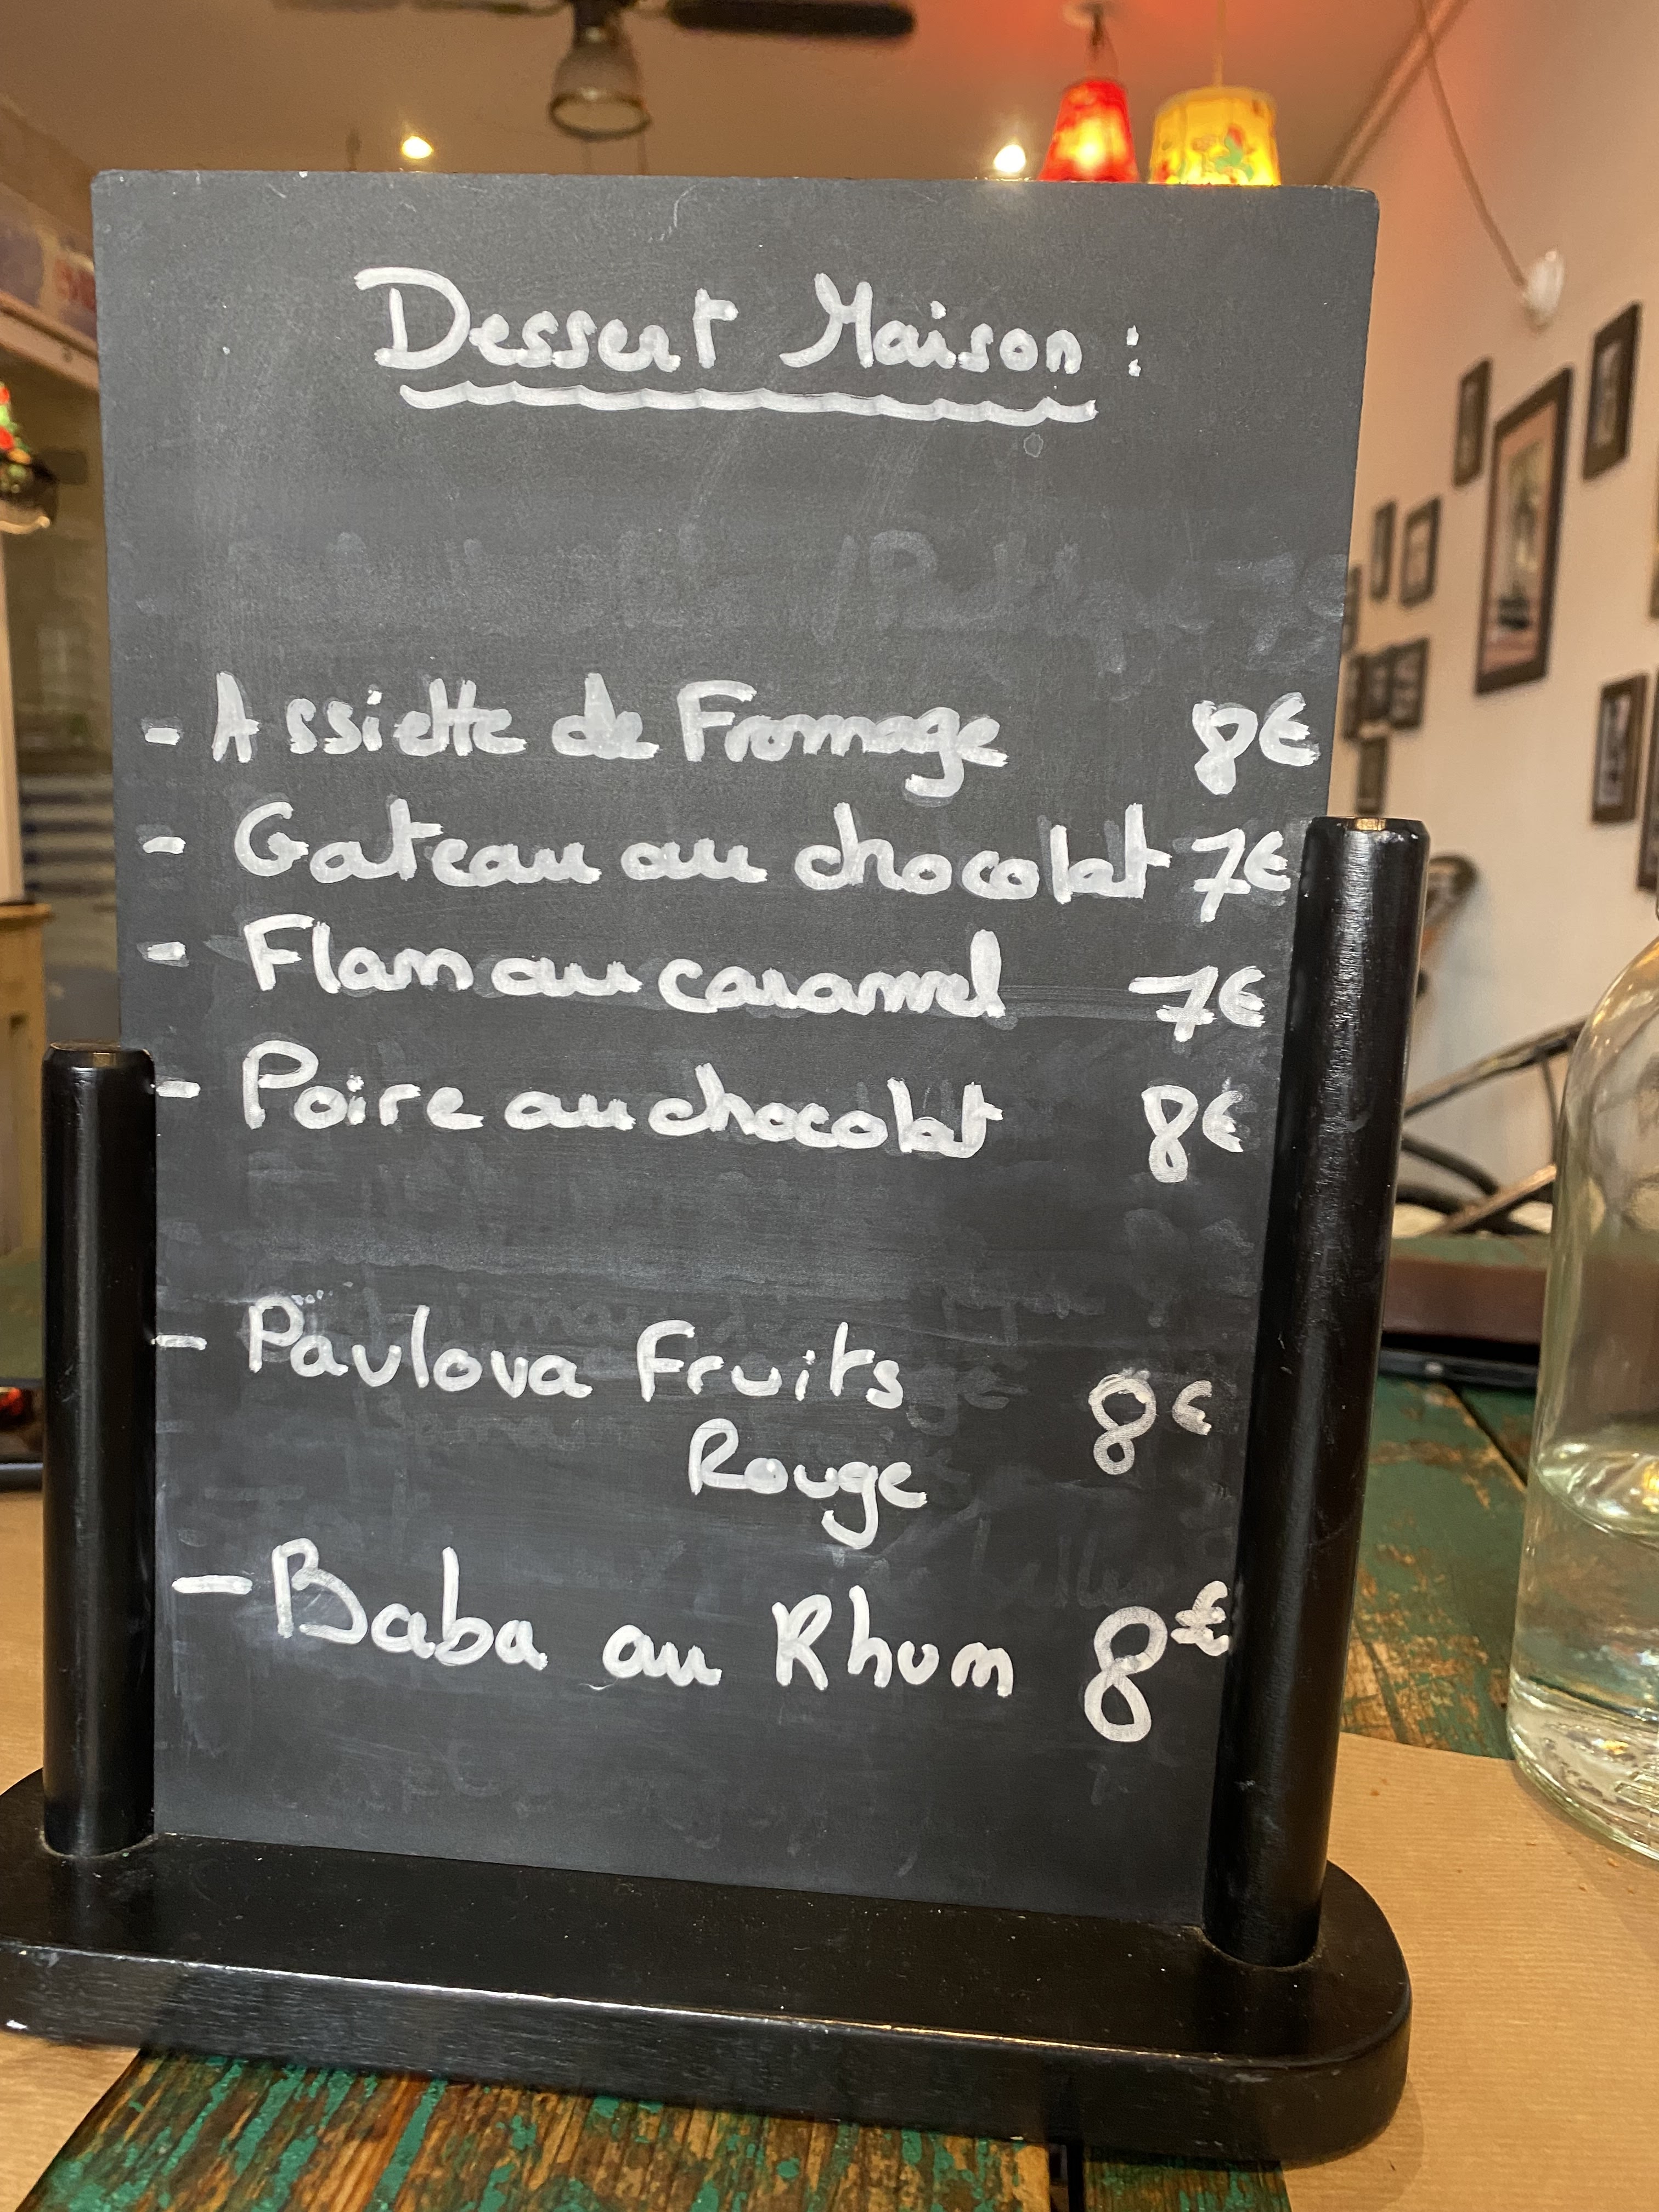 Dessert Maison :
- Assiette de Fromage 8€
- Gateau au chocolat 7€
- Flan au caramel 7€
- Poire au chocolat 8€
- Pavlova Fruits 8€
Rouge
- Baba au Rhum 8€